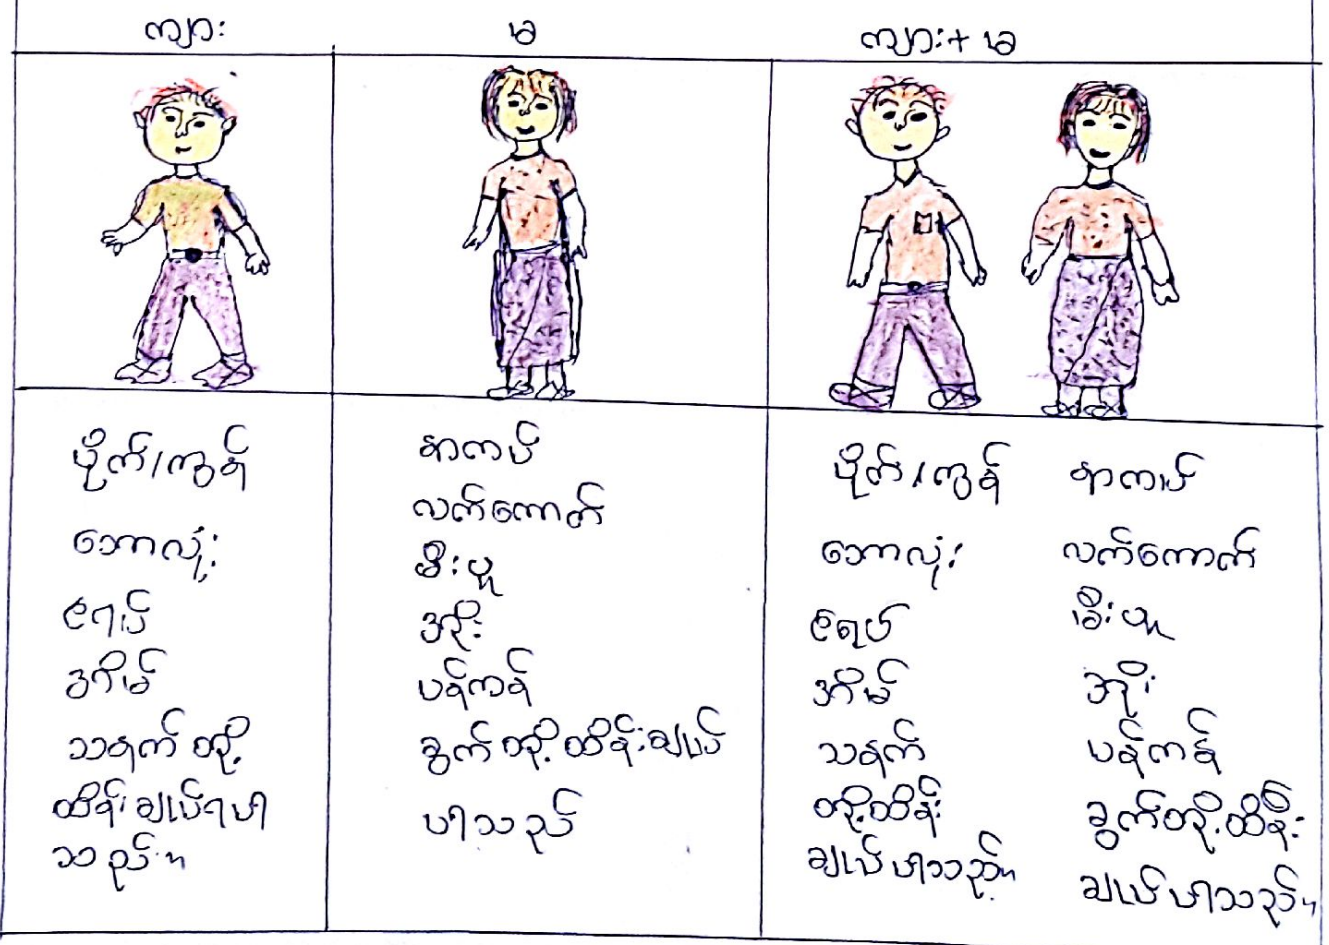 ကျား
ပိုက်/ကွန်
ဘောလုံး
ဇရပ်
အိမ်
သနက်တို့
ထိန်းချုပ်ရပါ
သည်။
မ
နာကပ်
လက်ကောက်
မီးပူ
အိုး
ပန်ကန်
ခွက်တို့ထိန်းချုပ်
ပါသည်
ကျား+မ
ပိုက်/ကွန်
ဘောလုံး
ဇရပ်
အိမ်
သနက်
တို့ထိန်း
ချုပ်ပါသည်။
နာကပ်
လက်ကောက်
မီးပူ
အိုး
ပန်ကန်
ခွက်တို့ထိန်း
ချုပ်ပါသည်။